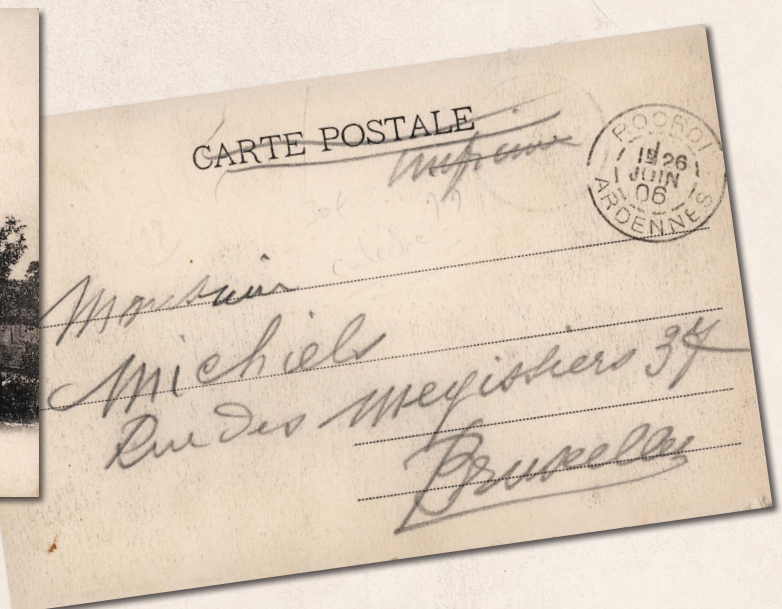 CARTE POSTALE
ROCROI
26
JUIN
06
ARDENNES
Monsieur
Michiels
Rue des Megissiers 37
Bruxelles